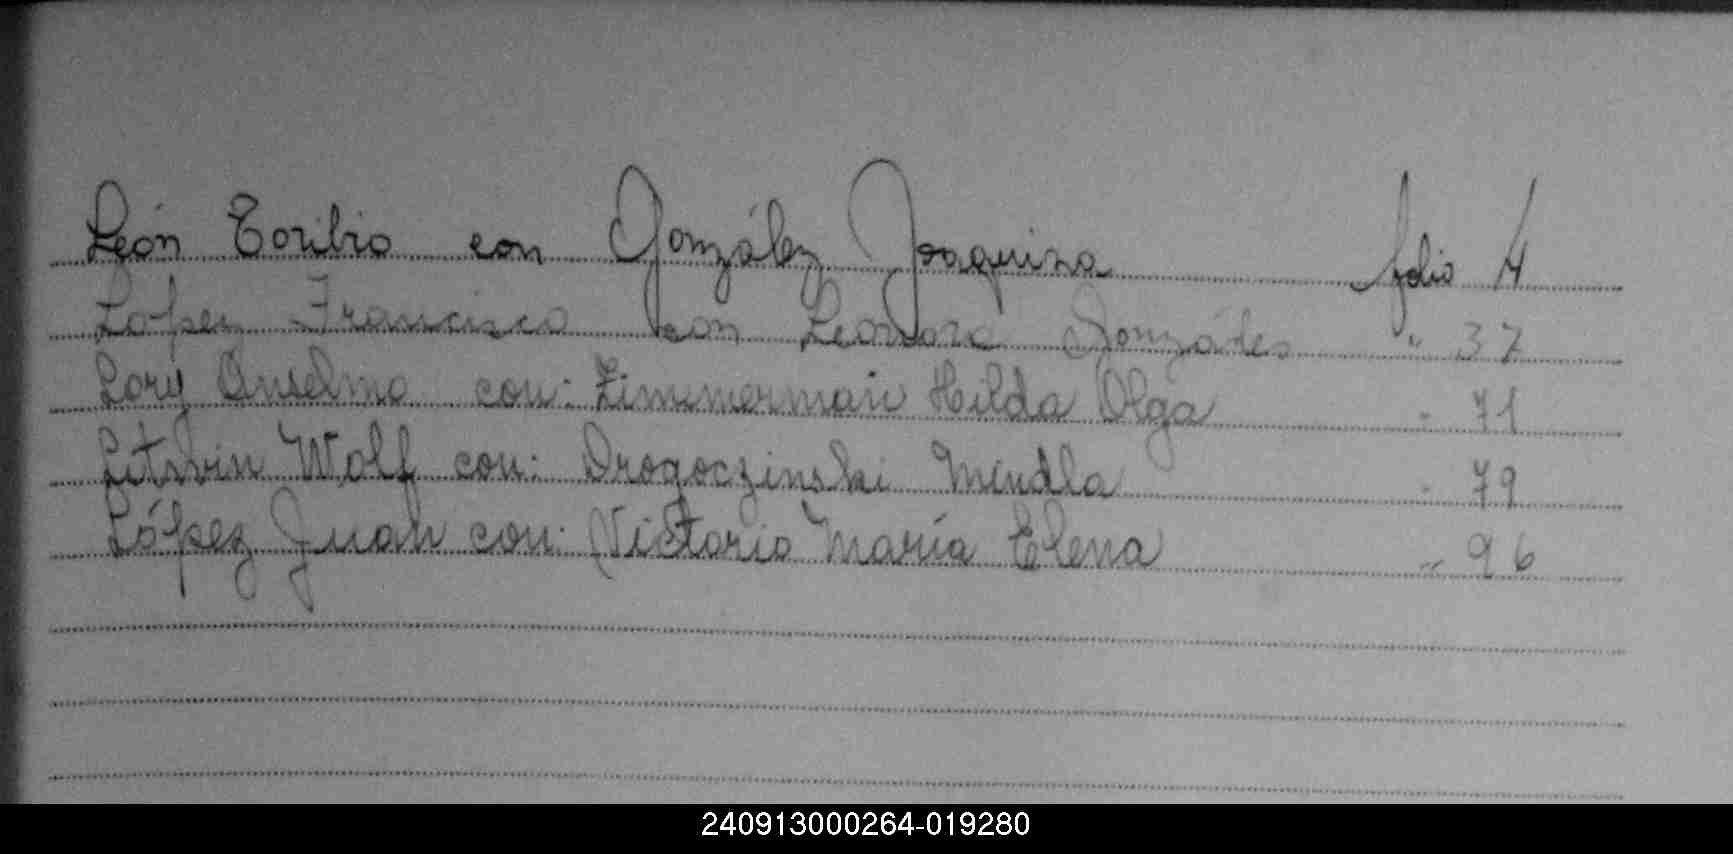 León Toribio con González Joaquina folio 4
López Francisco con Leonora Gonzáles " 37
Lory Anselmo con: Zimmerman Hilda Olga " 71
Litvin Wolf con: Drogoczinski Mindla " 79
López Juan con: Victorio María Elena " 96
240913000264-019280